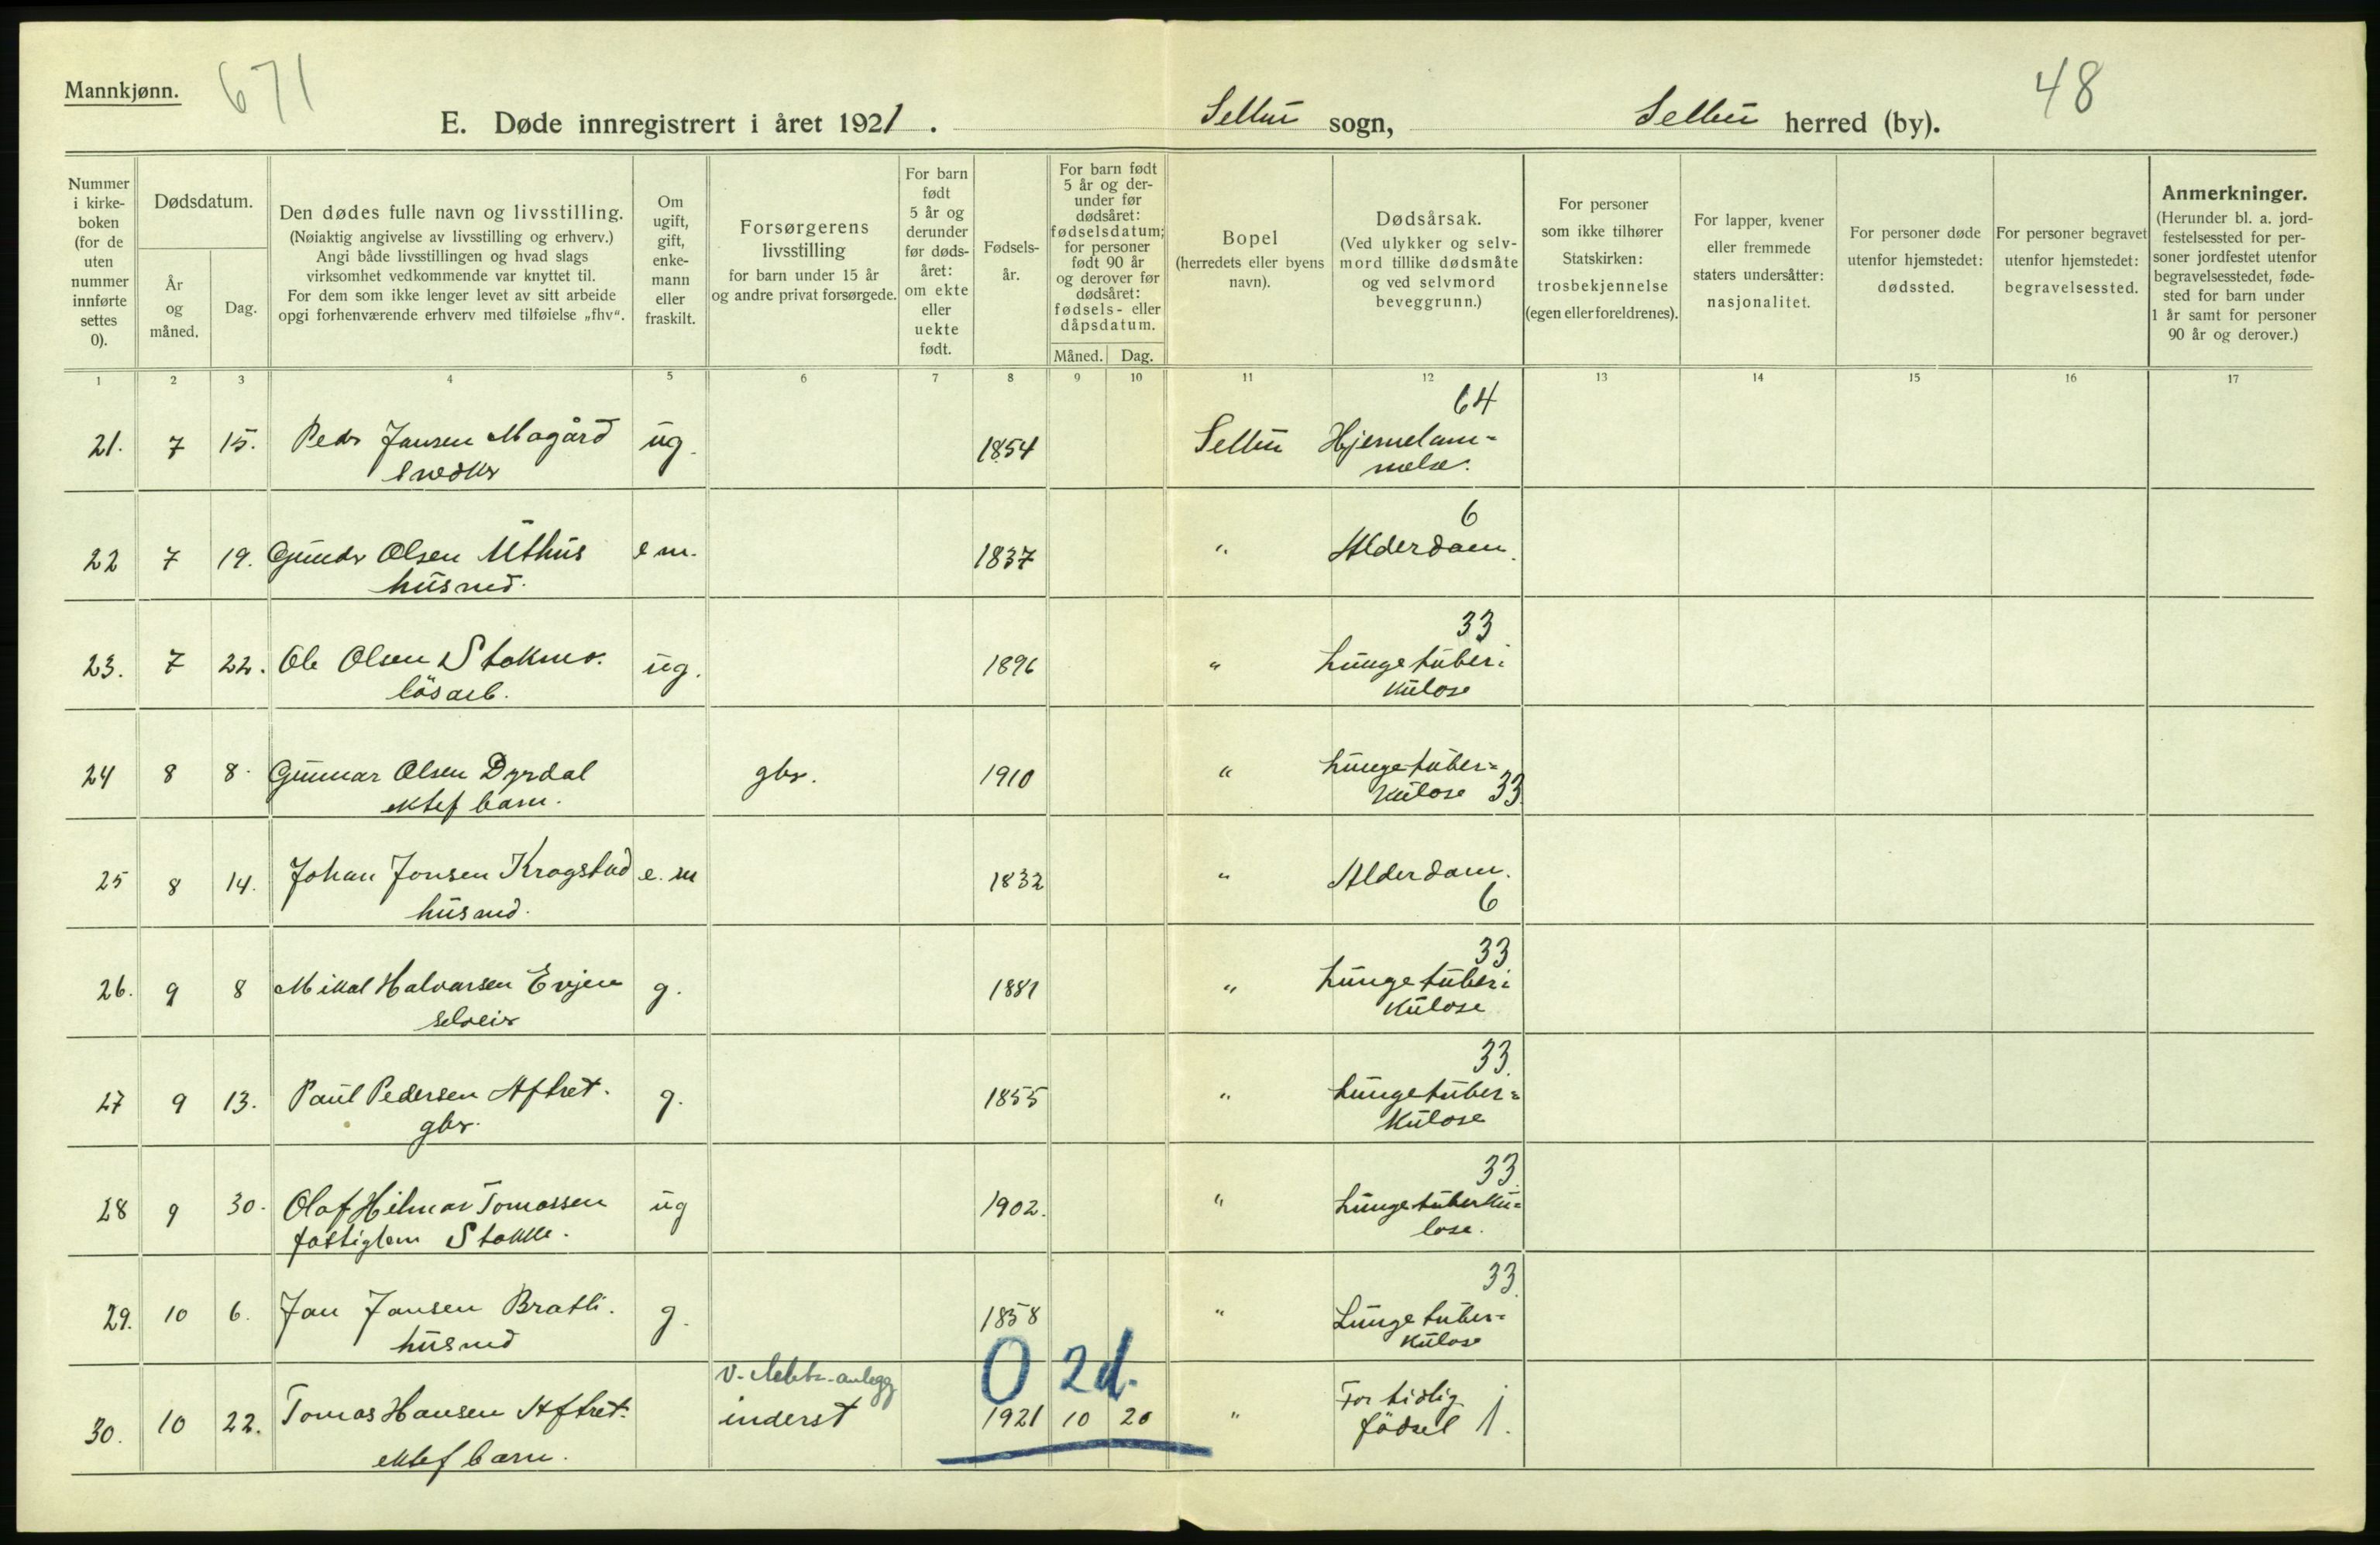 Mannkjønn.
671
E. Døde innregistrert i året 1921.
Selbu sogn,
Selbu herred (by).
48
Nummer i kirke-boken (for de uten nummer innførte settes 0).
Dødsdatum.
År og måned.
Dag.
Den dødes fulle navn og livsstilling.
(Nøiaktig angivelse av livsstilling og erhverv.)
Angi både livsstillingen og hvad slags
virksomhet vedkommende var knyttet til.
For dem som ikke lenger levet av sitt arbeide
opgi forhenværende erhverv med tilføielse „fhv“.
Om ugift, gift, enke-mann eller fraskilt.
Forsørgerens livsstilling
for barn under 15 år
og andre privat forsørgede.
For barn født 5 år og derunder før døds-året: om ekte eller uekte født.
Fødsels-år.
For barn født 5 år og der-under før dødsåret: fødselsdatum; for personer født 90 år og derover før dødsåret: fødsels- eller dåpsdatum.
Måned.
Dag.
Bopel
(herredets eller byens navn).
Dødsårsak.
(Ved ulykker og selv-mord tillike dødsmåte og ved selvmord beveggrunn.)
For personer som ikke tilhører Statskirken: trosbekjennelse (egen eller foreldrenes).
For lapper, kvener eller fremmede staters undersåtter: nasjonalitet.
For personer døde utenfor hjemstedet: dødssted.
For personer begravet utenfor hjemstedet: begravelsessted.
Anmerkninger.
(Herunder bl. a. jord-festelsessted for per-soner jordfestet utenfor begravelsesstedet, føde-sted for barn under 1 år samt for personer 90 år og derover.)
1 2 3 4 5 6 7 8 9 10 11 12 13 14 15 16 17
64
21. 7 15. Peder Jansen Mogård ug. 1854 Selbu Hjernelam-
snedker melse.
6
22 7 19. Gunder Olsen Uthus e m. 1837 " Alderdom.
husmd.
33
23. 7 22. Ole Olsen Stokmo. ug. 1896 " Lungetuber-
løsarb. kulose
24 8 8. Gunnar Olsen Dyrdal gbr. 1910 " Lungetuber=
ektef barn. kulose 33
25 8 14. Johan Jonsen Krogstad e. m 1832 " Alderdom.
husmd. 6
33
26. 9 8 Mikal Halvorsen Evjen g. 1881 " Lungetuber-
selveier kulose
33.
27 9 13. Paul Pedersen Aftret. g. 1855 " Lungetuber=
gbr. kulose
33.
28 9 30. Olaf Hilmar Tomassen ug 1902. " Lungetuberku=
fattiglem Stokke. lose.
33.
29. 10 6. Jon Jonsen Bratli. g. 1858 " Lungetuber=
husmd kulose
v. elektr.-anlegg 0 2d. For tidlig
30. 10 22. Tomas Hansen Aftret. inderst 1921 10 20 " fødsel 1.
ektef barn.